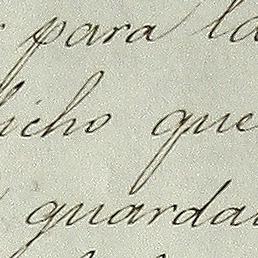 para la
dicho que
guardar